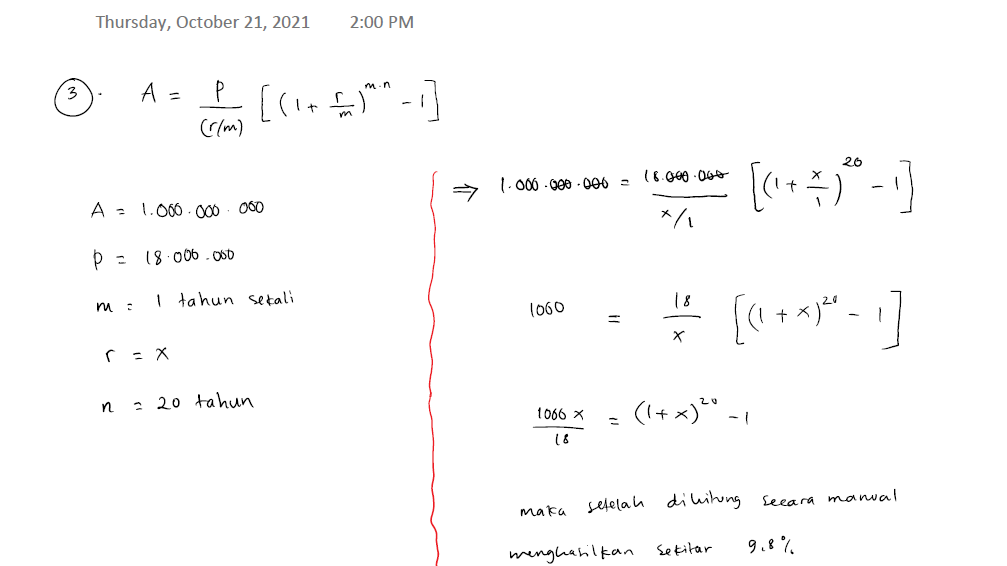 Thursday, October 21, 2021 2:00 PM
3. A = P/(r/m) [(1 + r/m)^m.n - 1]
A = 1.000.000.000
P = 18.000.000
m = 1 tahun sekali
r = x
n = 20 tahun
⇒ 1.000.000.000 = 18.000.000/(x/1) [(1 + x/1)^20 - 1]
1000 = 18/x [(1 + x)^20 - 1]
1000 x/18 = (1 + x)^20 - 1
maka setelah dihitung secara manual
menghasilkan sekitar 9.8%